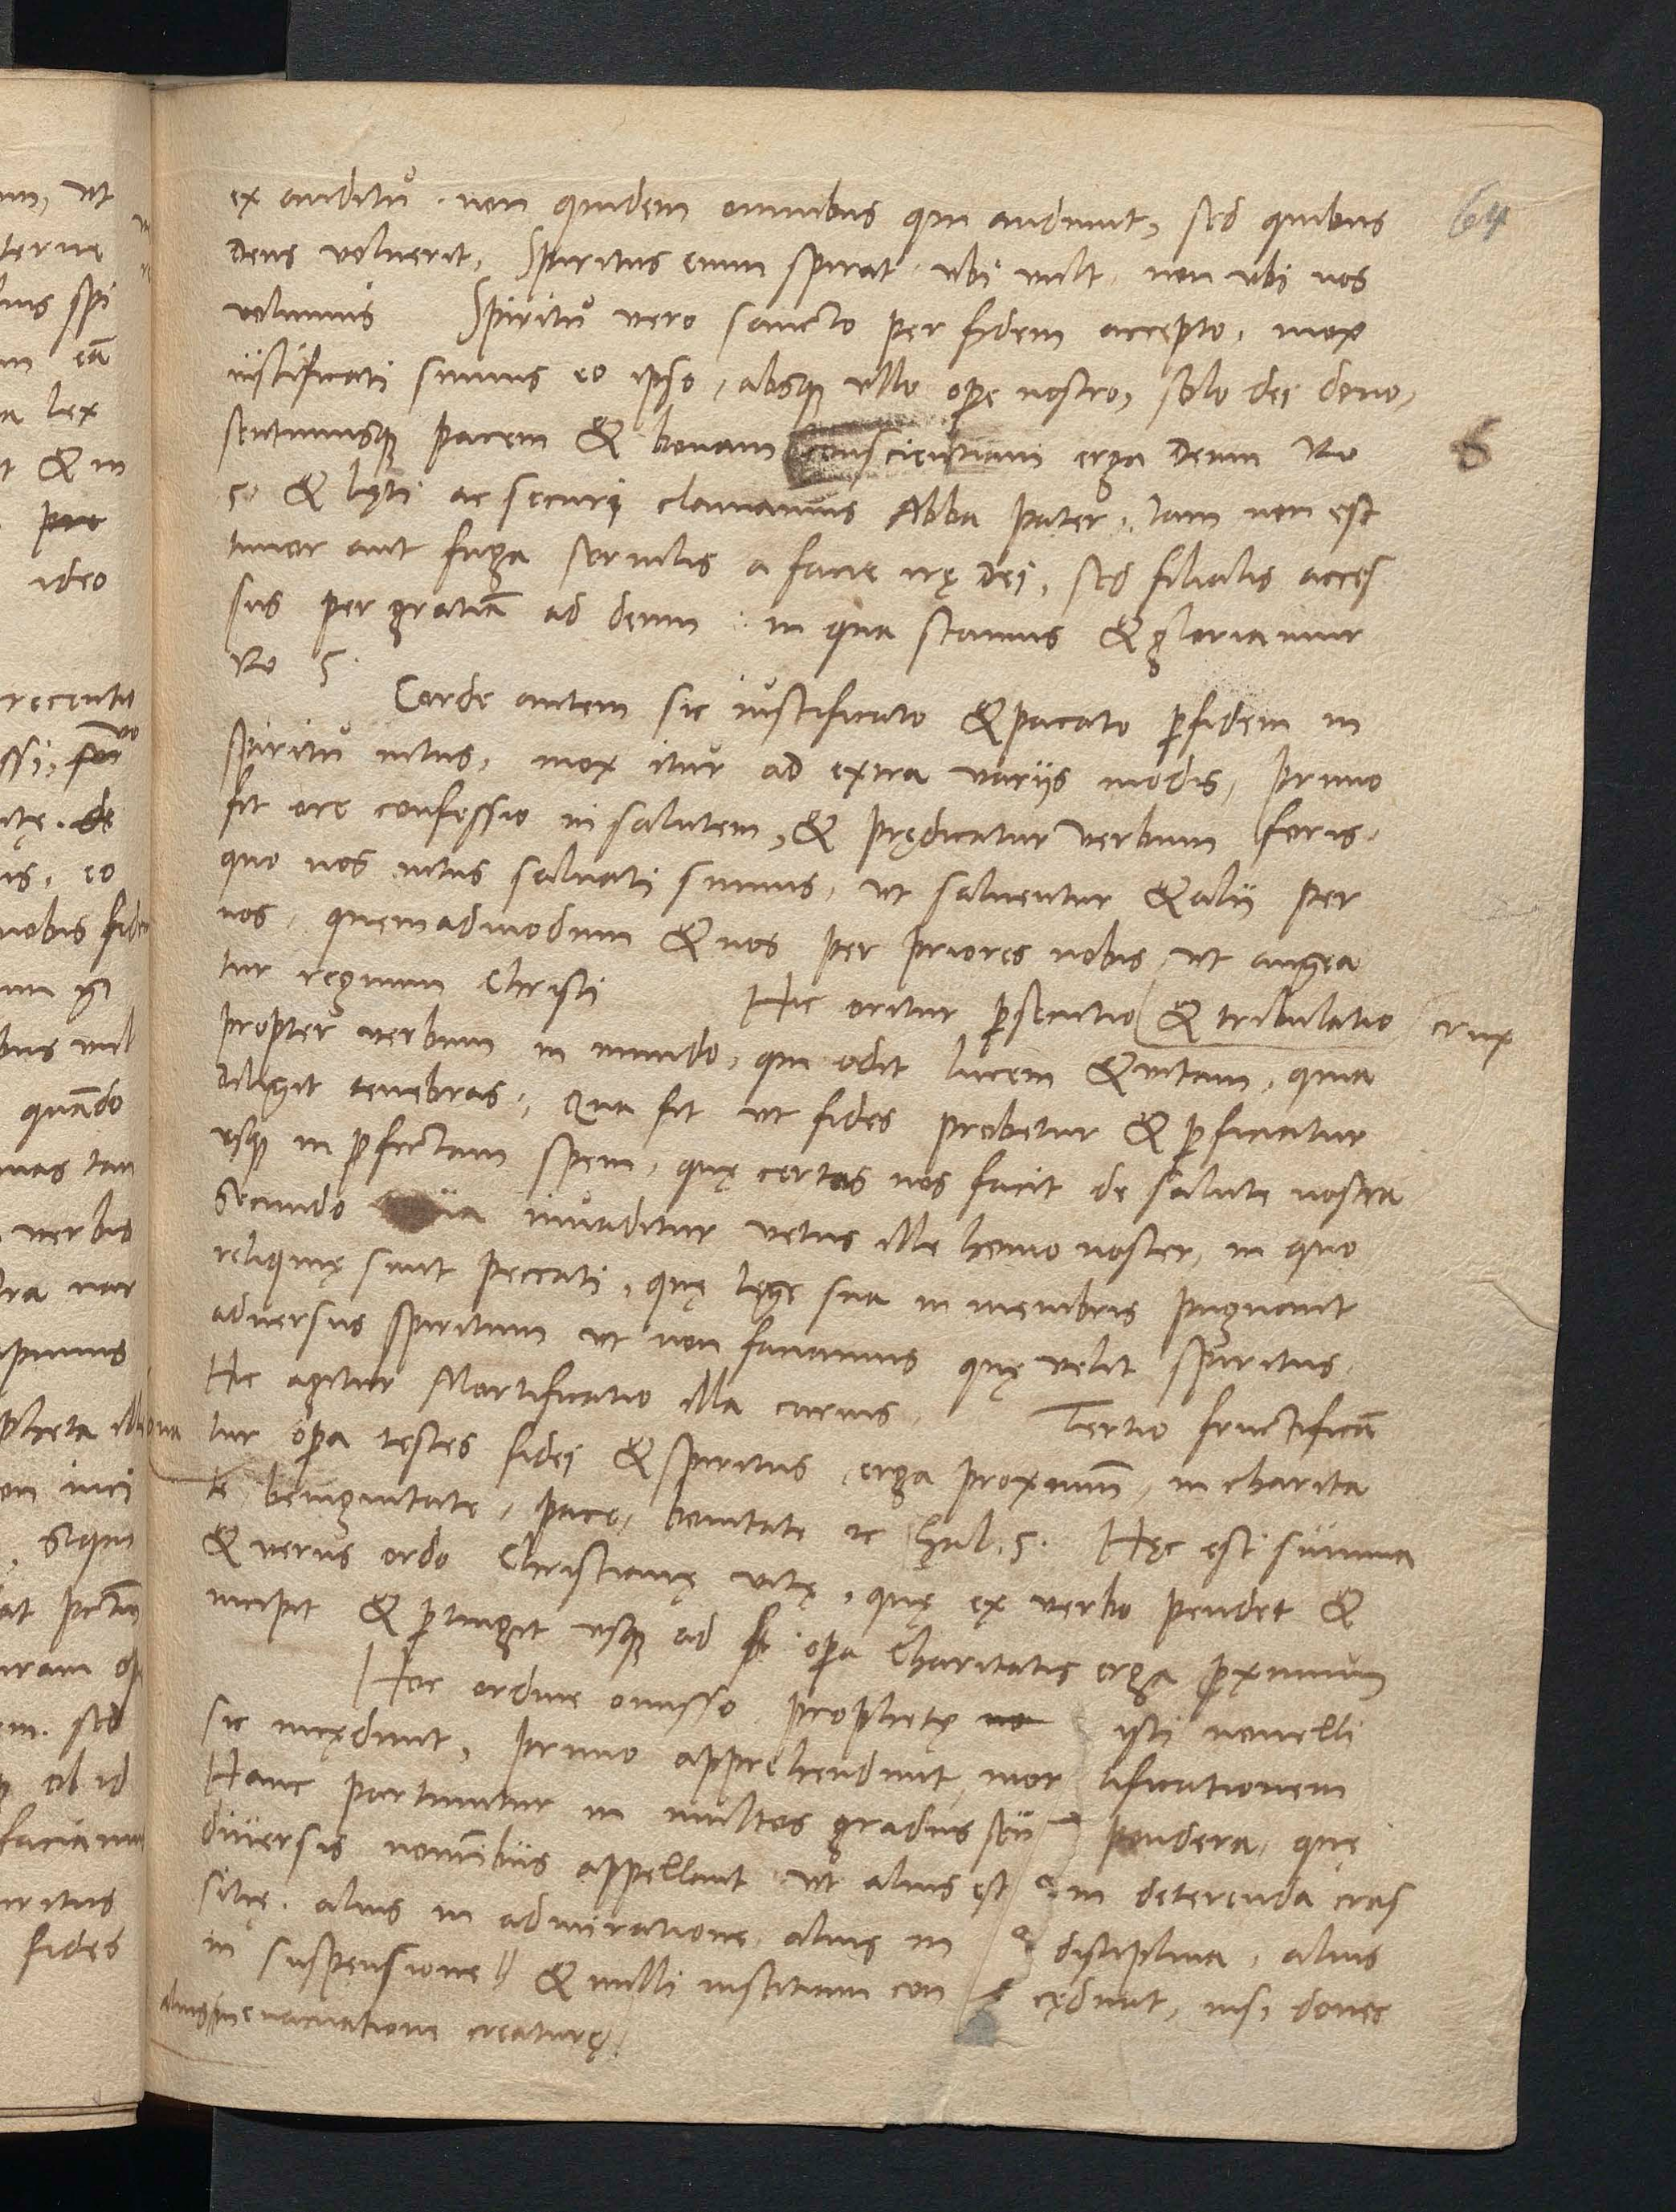 ex auditu. non quidem omnibus qui audiunt, sed quibus
deus voluerit, Spiritus enim spirat ubi vult, non ubi nos
volumus Spiritu vero sancto per fidem accepto, mox
iustificati sumus eo ipso, absq ullo ope nostro, solo dei dono,
sentimusq pacem & bonam conscientiam erga deum Ro
5, & lęti ac securi clamamus Abba pater, Iam non est
timor aut fuga servilis a facie irę dei, sed filialis acces
sus per gratiā ad deum in qua stamus & gloriamur
Ro 5.
Corde autem sic iustificato & pacato p fidem in
spiritu intus, mox itur ad extra varijs modis, Primo
fit ore confessio in salutem, & prędicatur verbum foris.
quo nos intus salvati sumus, ut salventur & alii per
nos, quemadmodum & nos per priores nobis, ut augea
tur regnum Christi Hic oritur psecutio & tribulatio crux
propter verbum in mundo, qui odit lucem & vitam, quia
diligit tenebras, Qua fit ut fides probetur & pficiatur
usq in pfectam spem, quę certos nos facit de salute nostra
Secundo invaditur vetus ille homo noster, in quo
reliquię sunt peccati, quę lege sua in membris pugnant
adversus spiritum ut non faciamus quę velit spiritus.
Hic agitur Mortificatio illa carnis, Tertio fructificā
tur opa testes fidei & spiritus erga proximum, in charita
te, benignitate, pace, bonitate &c Gal. 5. Hęc est summa
& verus ordo Christianę vitę, quę ex verbo pendet &
incipit & ptingit usq ad opa Charitatis erga pximum
Hoc ordine omisso prophetę no isti novelli
sic incędunt, Primo apprehendunt mor tificationem
Hanc partiuntur in multos gradus seu pondera, quę
diversis nominibus appellant ut alius est in deterenda cras
sitię. alius in admiratione, alius in disciplina, alius
in suspensione & nulli iustitiam con cędunt, nisi donec
alius in evacuatione creaturę
64
6